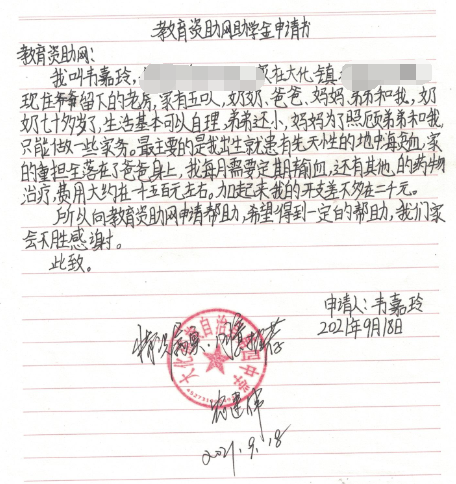 教育资助网助学金申请书
教育资助网：
我叫韦嘉玲，在大化镇
现在爷爷留下的老房，家有五口人，奶奶、爸爸、妈妈、弟弟和我，奶
奶七十多岁了，生活基本可以自理，弟弟还小，妈妈为了照顾弟弟和我
只能做一些家务。最主要的是我出生就患有先天性的地中海贫血，家
的重担全落在了爸爸身上，我每月需要定期输血，还有其他的药物
治疗，费用大约在一千五百元左右。加起来我的开支差不多在二千元。
所以向教育资助网申请帮助，希望得到一定的帮助，我们家
会不胜感谢。
此致。
申请人：韦嘉玲
2021年9月18日
情况属实，同意推荐
大化 自治县 中学
2021.9.18